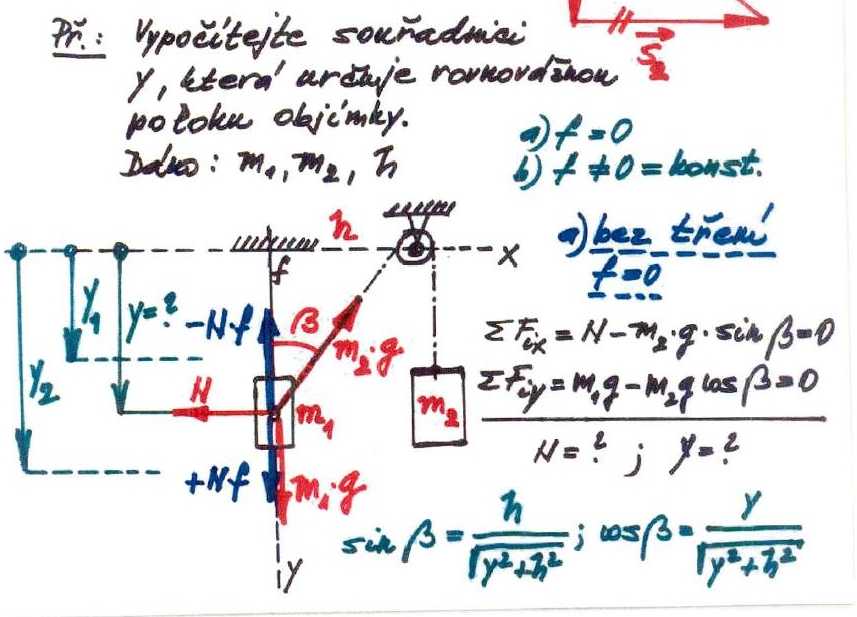 S₂
Př.: Vypočítejte souřadnici
y, která určuje rovnovážnou
polohu objímky.
Dáno: m₁, m₂, h
a) f = 0
b) f ≠ 0 = konst.
a) bez tření
f = 0
h
x
f
y₁
y = ?
y₂
-N·f
β
m₂·g
N
m₁
m₂
+N·f
m₁·g
y
ΣFix = N - m₂·g·sin β = 0
ΣFiy = m₁g - m₂g cos β = 0
N = ? ; y = ?
sin β = h/√(y²+h²) ; cos β = y/√(y²+h²)